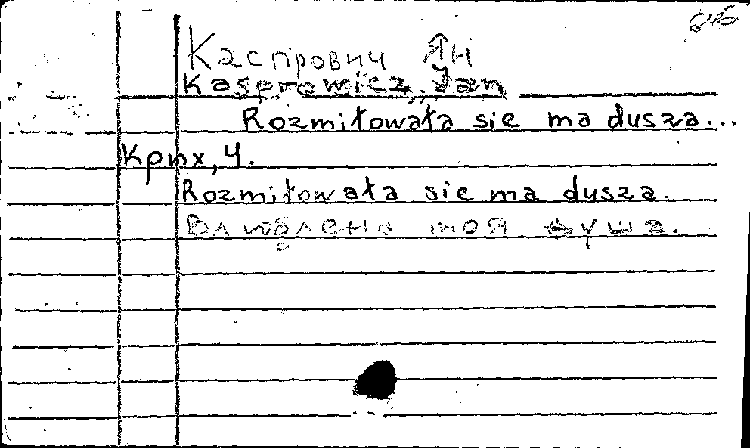 Каспрович Ян
Kasprowicz, Jan
Rozmiłowała sie ma dusza...
Крих, Ч.
Rozmiłowała sie ma dusza.
моя душа.